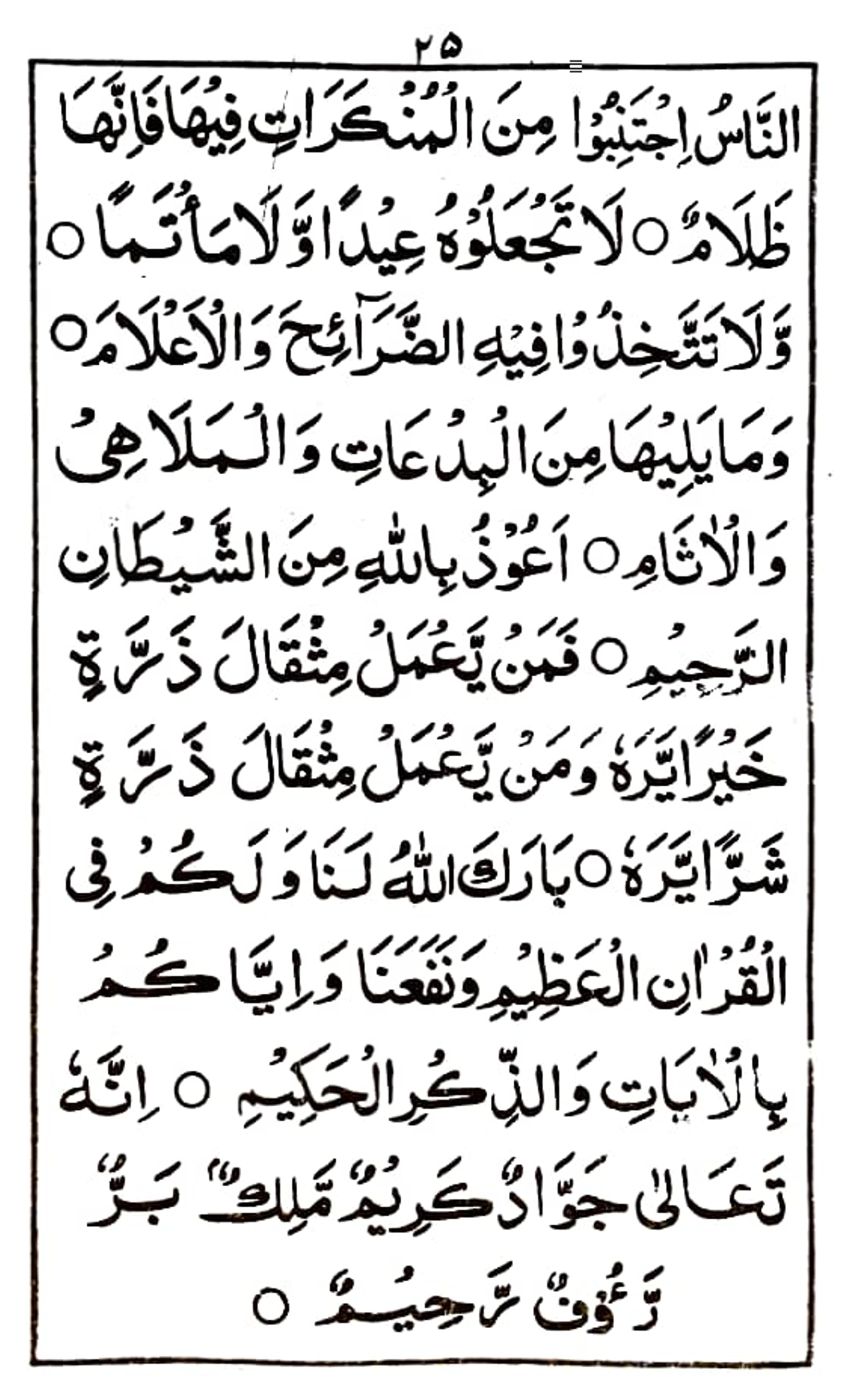 ۲۵
النَّاسُ اِجْتَنِبُوْا مِنَ الْمُنْكَرَاتِ فِيْهَا فَاِنَّهَا
ظَلَامٌ ○ لَا تَجْعَلُوْهُ عِيْدًا وَّلَا مَأْتَمًا ○
وَّلَا تَتَّخِذُوْا فِيْهِ الضَّرَآئِحَ وَالْاَعْلَامَ ○
وَمَا يَلِيْهَا مِنَ الْبِدْعَاتِ وَالْمَلَاهِىْ
وَالْاٰثَامِ ○ اَعُوْذُ بِاللّٰهِ مِنَ الشَّيْطَانِ
الرَّجِيْمِ ○ فَمَنْ يَّعْمَلْ مِثْقَالَ ذَرَّةٍ
خَيْرًا يَّرَهٗ وَمَنْ يَّعْمَلْ مِثْقَالَ ذَرَّةٍ
شَرًّا يَّرَهٗ ○ بَارَكَ اللّٰهُ لَنَا وَلَكُمْ فِى
الْقُرْاٰنِ الْعَظِيْمِ وَنَفَعَنَا وَاِيَّاكُمْ
بِالْاٰيَاتِ وَالذِّكْرِ الْحَكِيْمِ ○ اِنَّهٗ
تَعَالٰى جَوَّادٌ كَرِيْمٌ مَّلِكٌ بَرٌّ
رَّءُوْفٌ رَّحِيْمٌ ○